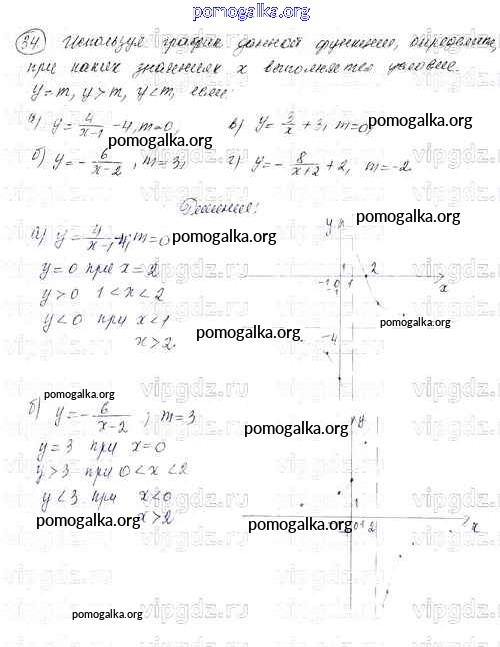 pomogalka.org
34. Используя график данной функции, определите,
при каких значениях x выполняется условие
y=m, y>m, y<m, если:
а) y = 4/(x-1) - 4, m=0, в) y = 3/x + 3, m=0,
pomogalka.org
pomogalka.org
б) y = - 6/(x-2), m=3, г) y = - 8/(x+2) + 2, m=-2
Решение:
pomogalka.org
а) y = 4/(x-1) - 4, m=0
pomogalka.org
y=0 при x=2
y>0 1<x<2
y<0 при x<1
x>2.
y
-1 0 1 2
x
-4
pomogalka.org
pomogalka.org
pomogalka.org
б) y = - 6/(x-2), m=3
pomogalka.org
y=3 при x=0
y>3 при 0<x<2
y<3 при x<0
x>2
y
1
0 1 2
x
pomogalka.org
pomogalka.org
pomogalka.org
vipgdz.ru